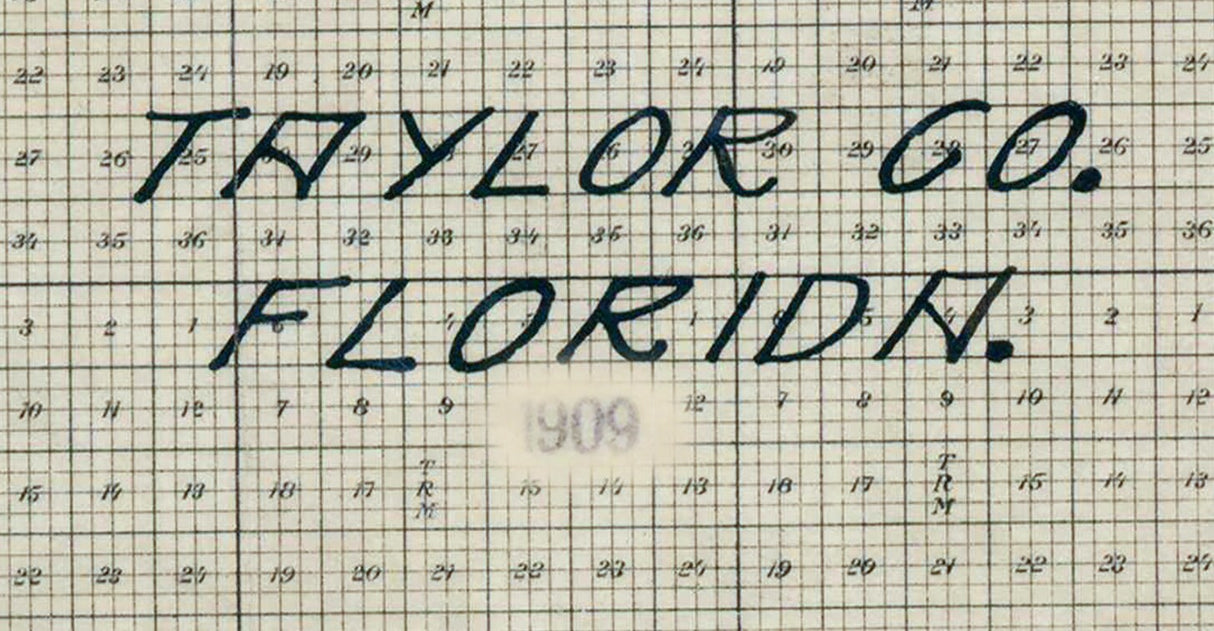 M M
22 23 24 19 20 21 22 23 24 19 20 21 22 23 24
TAYLOR CO.
27 26 25 30 29 27 30 29 28 27 26 25
34 35 36 31 32 33 34 35 36 31 32 33 34 35 36
FLORIDA.
3 2 1 6 4 1 5 4 3 2 1
10 11 12 7 8 9 12 7 8 9 10 11 12
1909
15 14 13 18 17 T R M 15 14 13 18 17 T R M 15 14 13
22 23 24 19 20 21 22 23 24 19 20 21 22 23 24